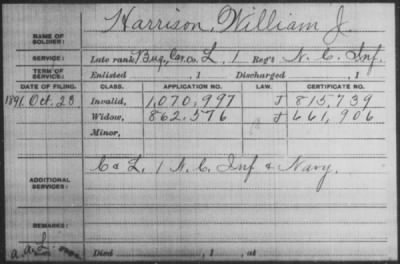 NAME OF SOLDIER: Harrison, William J.
SERVICE: Late rank Bug., Co. L, 1 Reg't N. C. Inf.
TERM OF SERVICE: Enlisted , 1 Discharged , 1
DATE OF FILING. CLASS. APPLICATION NO. LAW. CERTIFICATE NO.
1891 Oct. 23 Invalid, 1,070,997 J 815,739
Widow, 862,576 J 661,906
Minor,
ADDITIONAL SERVICES: C & L. 1 N. C. Inf & Navy.
REMARKS:
Died , 1 , at